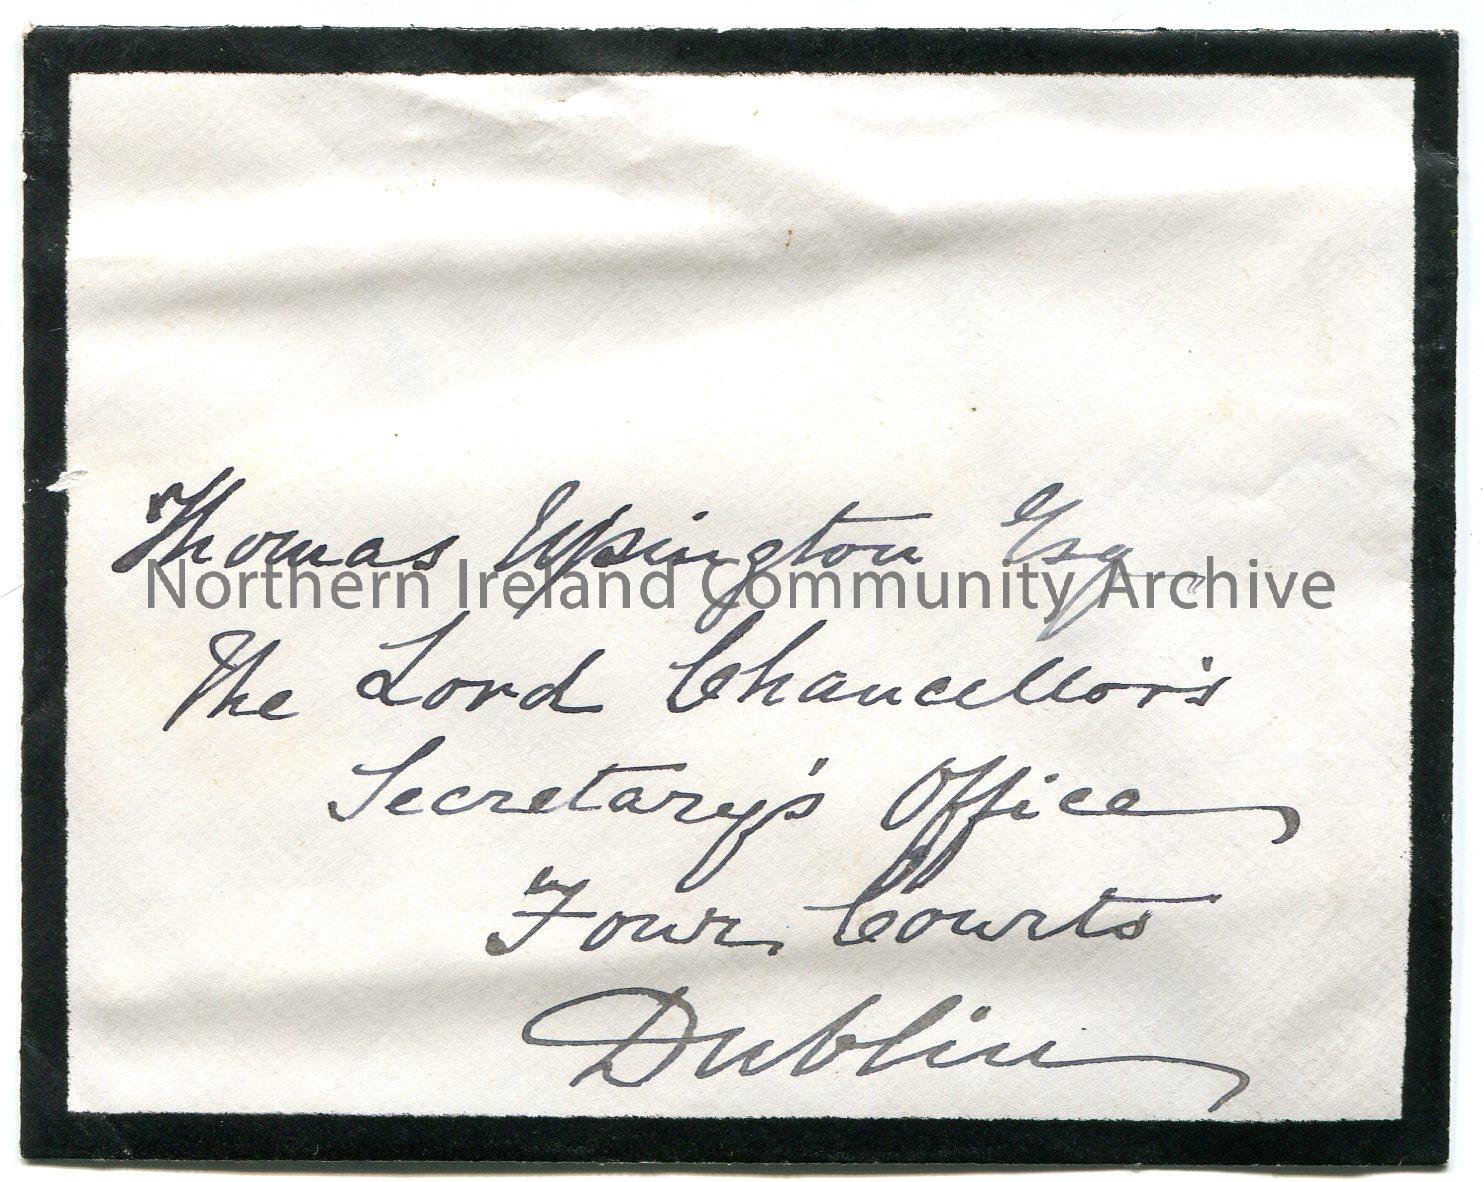 Thomas Upington Esq
Northern Ireland Community Archive
The Lord Chancellor's
Secretary's Office
Four Courts
Dublin